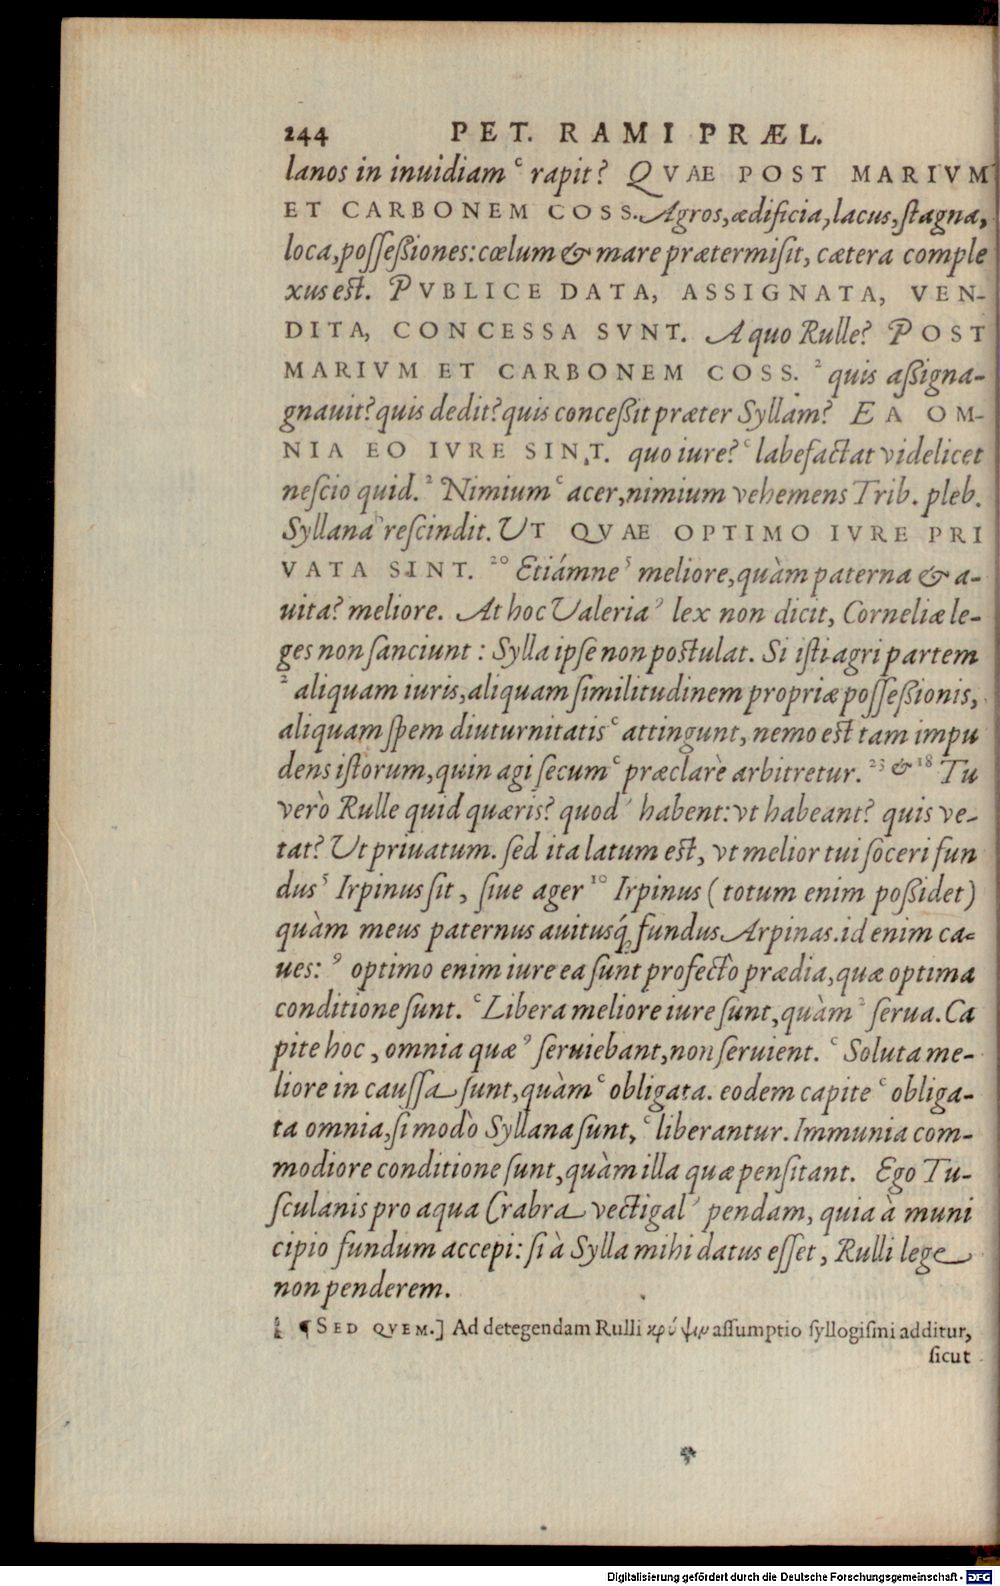 244 PET. RAMI PRÆL.
lanos in inuidiam ᶜ rapit? QVAE POST MARIVM
ET CARBONEM COSS. Agros, ædificia, lacus, ſtagna,
loca, poſſeßiones: cœlum & mare prætermiſit, cætera comple
xus eſt. PVBLICE DATA, ASSIGNATA, VEN-
DITA, CONCESSA SVNT. A quo Rulle? POST
MARIVM ET CARBONEM COSS. ² quis aßigna-
gnauit? quis dedit? quis conceßit præter Syllam? EA OM-
NIA EO IVRE SINT. quo iure? ᶜ labefactat videlicet
neſcio quid. ² Nimium ᶜ acer, nimium vehemens Trib. pleb.
Syllana ᵇ reſcindit. UT QVAE OPTIMO IVRE PRI
VATA SINT. ²⁰ Etiámne ⁵ meliore, quàm paterna & a-
uita? meliore. At hoc Valeria ⁹ lex non dicit, Corneliæ le-
ges non ſanciunt: Sylla ipſe non poſtulat. Si iſti agri partem
² aliquam iuris, aliquam ſimilitudinem propriæ poſſeßionis,
aliquam ſpem diuturnitatis ᶜ attingunt, nemo eſt tam impu
dens iſtorum, quin agi ſecum ᶜ præclarè arbitretur. ²³ & ¹⁸ Tu
verò Rulle quid quæris? quod ʾ habent: vt habeant? quis ve-
tat? Ut priuatum. ſed ita latum eſt, vt melior tui ſoceri fun
dus ⁵ Irpinus ſit, ſiue ager ¹⁰ Irpinus (totum enim poßidet)
quàm meus paternus auitusq́; fundus Arpinas. id enim ca-
ues: ⁹ optimo enim iure ea ſunt profectò prædia, quæ optima
conditione ſunt. ᶜ Libera meliore iure ſunt, quàm ² ſerua. Ca
pite hoc, omnia quæ ⁹ ſeruiebant, non ſeruient. ᶜ Soluta me-
liore in cauſſa ſunt, quàm ᶜ obligata. eodem capite ᶜ obliga-
ta omnia, ſi modò Syllana ſunt, ᶜ liberantur. Immunia com-
modiore conditione ſunt, quàm illa quæ penſitant. Ego Tu-
ſculanis pro aqua Crabra vectigal ʾ pendam, quia à muni
cipio fundum accepi: ſi à Sylla mihi datus eſſet, Rulli lege
non penderem.
¶ SED QVEM.] Ad detegendam Rulli κρύψιν aſſumptio ſyllogiſmi additur,
ſicut
Digitalisierung gefördert durch die Deutsche Forschungsgemeinschaft - DFG